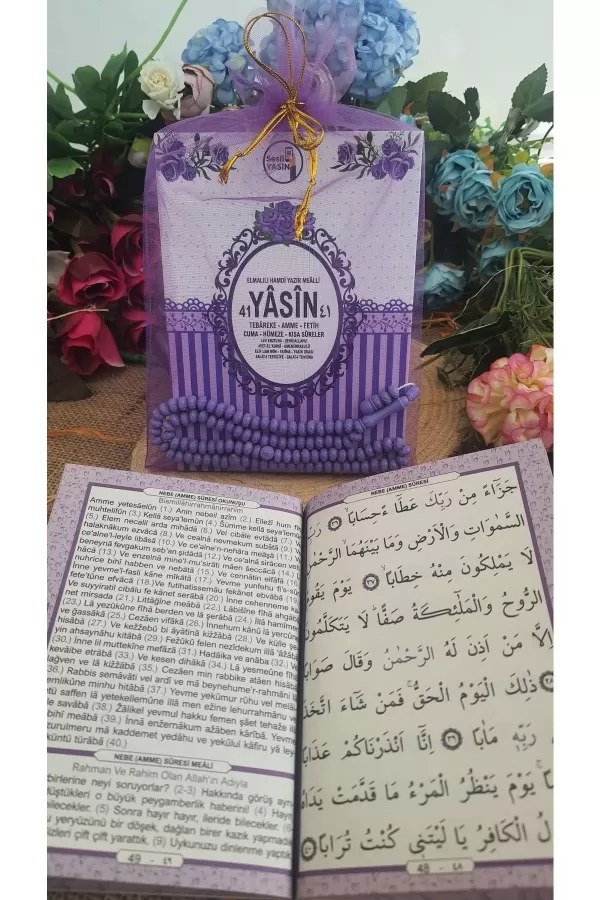 Sesli
YASİN
ELMALILI HAMDİ YAZIR MEÂLLİ
41 YÂSÎN ٤١
TEBÂREKE - AMME - FETİH
CUMA - HÜMEZE - KISA SÛRELER
NEBE (AMME) SÛRESİ OKUNUŞU
Bismillâhirrahmânirrahîm
Amme yetesâelûn (1.) Anin nebeil azîm (2.) Ellezî hum fîh
muhtelifûn (3.) Kellâ seya'lemûn (4.) Summe kellâ seya'lemûn
(5.) Elem necalil arda mihâdâ (6.) Vel cibâle evtâdâ (7.) Ve
halaknâkum ezvâcâ (8.) Ve cealnâ nevmekum subâtâ (9.)
ce'alne'l-leyle libâsâ (10.) Ve ce'alne'n-nehâra meâşâ (11.)
beneynâ fevgakum seb'an şidâdâ (12.) Ve ce'alnâ sirâcen ve
hâcâ (13.) Ve enzelnâ mine'l-mu'sirâti mâen seccâcâ (14.)
nuhrice bihî habben ve nebâtâ (15.) Ve cennâtin elfâfâ (16.)
İnne yevme'l-fasli kâne mîkâtâ (17.) Yevme yunfehu fî's-sûri
fete'tûne efvâcâ (18.) Ve futihatissemâu fekânet ebvâbâ (19.)
Ve suyyiratil cibâlu fe kânet serâbâ (20.) İnne cehenneme kâ
net mirsada (21.) Littâgîne meâbâ (22.) Lâbisîne fîhâ ahgâbâ
(23.) Lâ yezûkûne fîhâ berden ve lâ şerâbâ (24.) İllâ hamîmen
ve ğassâkâ (25.) Cezâen vifâkâ (26.) İnnehum kânû lâ yercûne
hisâbâ (27.) Ve kezzebû bi âyâtinâ kizzâbâ (28.) Ve külle şe
yin ahsaynâhu kitâbâ (29.) Fezûkû felen nezîdekum illâ 'azâbâ
(30.) İnne lil muttekîne mefâzâ (31.) Hadâika ve anâba (32.) Ve
kevâibe etrâbâ (33.) Ve kesen dihâkâ (34.) Lâ yesmeûne fîhâ
lağven ve lâ kizzâbâ (35.) Cezâen min rabbike atâen hisâbâ
(36.) Rabbis semâvâti vel ardı ve mâ beynehume'r-rahmâni
emlikûne minhu hitâbâ (37.) Yevme yekûmur rûhu vel melâ
tu saffen lâ yetekellemûne illâ men ezine lehurrahmânu ve
le savâbâ (38.) Zâlikel yevmul hakku femen şâet tehaze il
bihî meâbâ (39.) İnnâ enzernâkum azâben karîbâ. Yevme
turulmeru mâ kaddemet yedâhu ve yekûlul kâfiru yâ ley
küntü türâbâ (40.)
NEBE (AMME) SÛRESİ MEÂLİ
Rahman Ve Rahim Olan Allah'ın Adıyla
birlerine neyi soruyorlar? (2-3) Hakkında görüş ayrı
düştükleri o büyük peygamberlik haberini! (4) Hayır
bilecekler. (5) Sonra hayır hayır, ileride bilecekler. (6
u yeryüzünü bir döşek, dağları birer kazık yapmadık
Sizleri çift çift yarattık. (9) Uykunuzu dinlenme yaptık
49 - ٤٩
NEBE (AMME) SÛRESİ
جَزَٓاءً مِنْ رَبِّكَ عَطَٓاءً حِسَابًاۙ ﴿٣٦﴾ رَبِّ
السَّمٰوَاتِ وَالْاَرْضِ وَمَا بَيْنَهُمَا الرَّحْمٰنِ
لَا يَمْلِكُونَ مِنْهُ خِطَابًاۚ ﴿٣٧﴾ يَوْمَ يَقُومُ
الرُّوحُ وَالْمَلٰٓئِكَةُ صَفًّاۜ لَا يَتَكَلَّمُونَ
اِلَّا مَنْ اَذِنَ لَهُ الرَّحْمٰنُ وَقَالَ صَوَابًا
﴿٣٨﴾ ذٰلِكَ الْيَوْمُ الْحَقُّۚ فَمَنْ شَٓاءَ اتَّخَذَ
رَبِّه۪ مَاٰبًا ﴿٣٩﴾ اِنَّٓا اَنْذَرْنَاكُمْ عَذَابًا
يَوْمَ يَنْظُرُ الْمَرْءُ مَا قَدَّمَتْ يَدَاهُ
لُ الْكَافِرُ يَا لَيْتَن۪ي كُنْتُ تُرَابًا ﴿٤٠﴾
48 - ٤٨